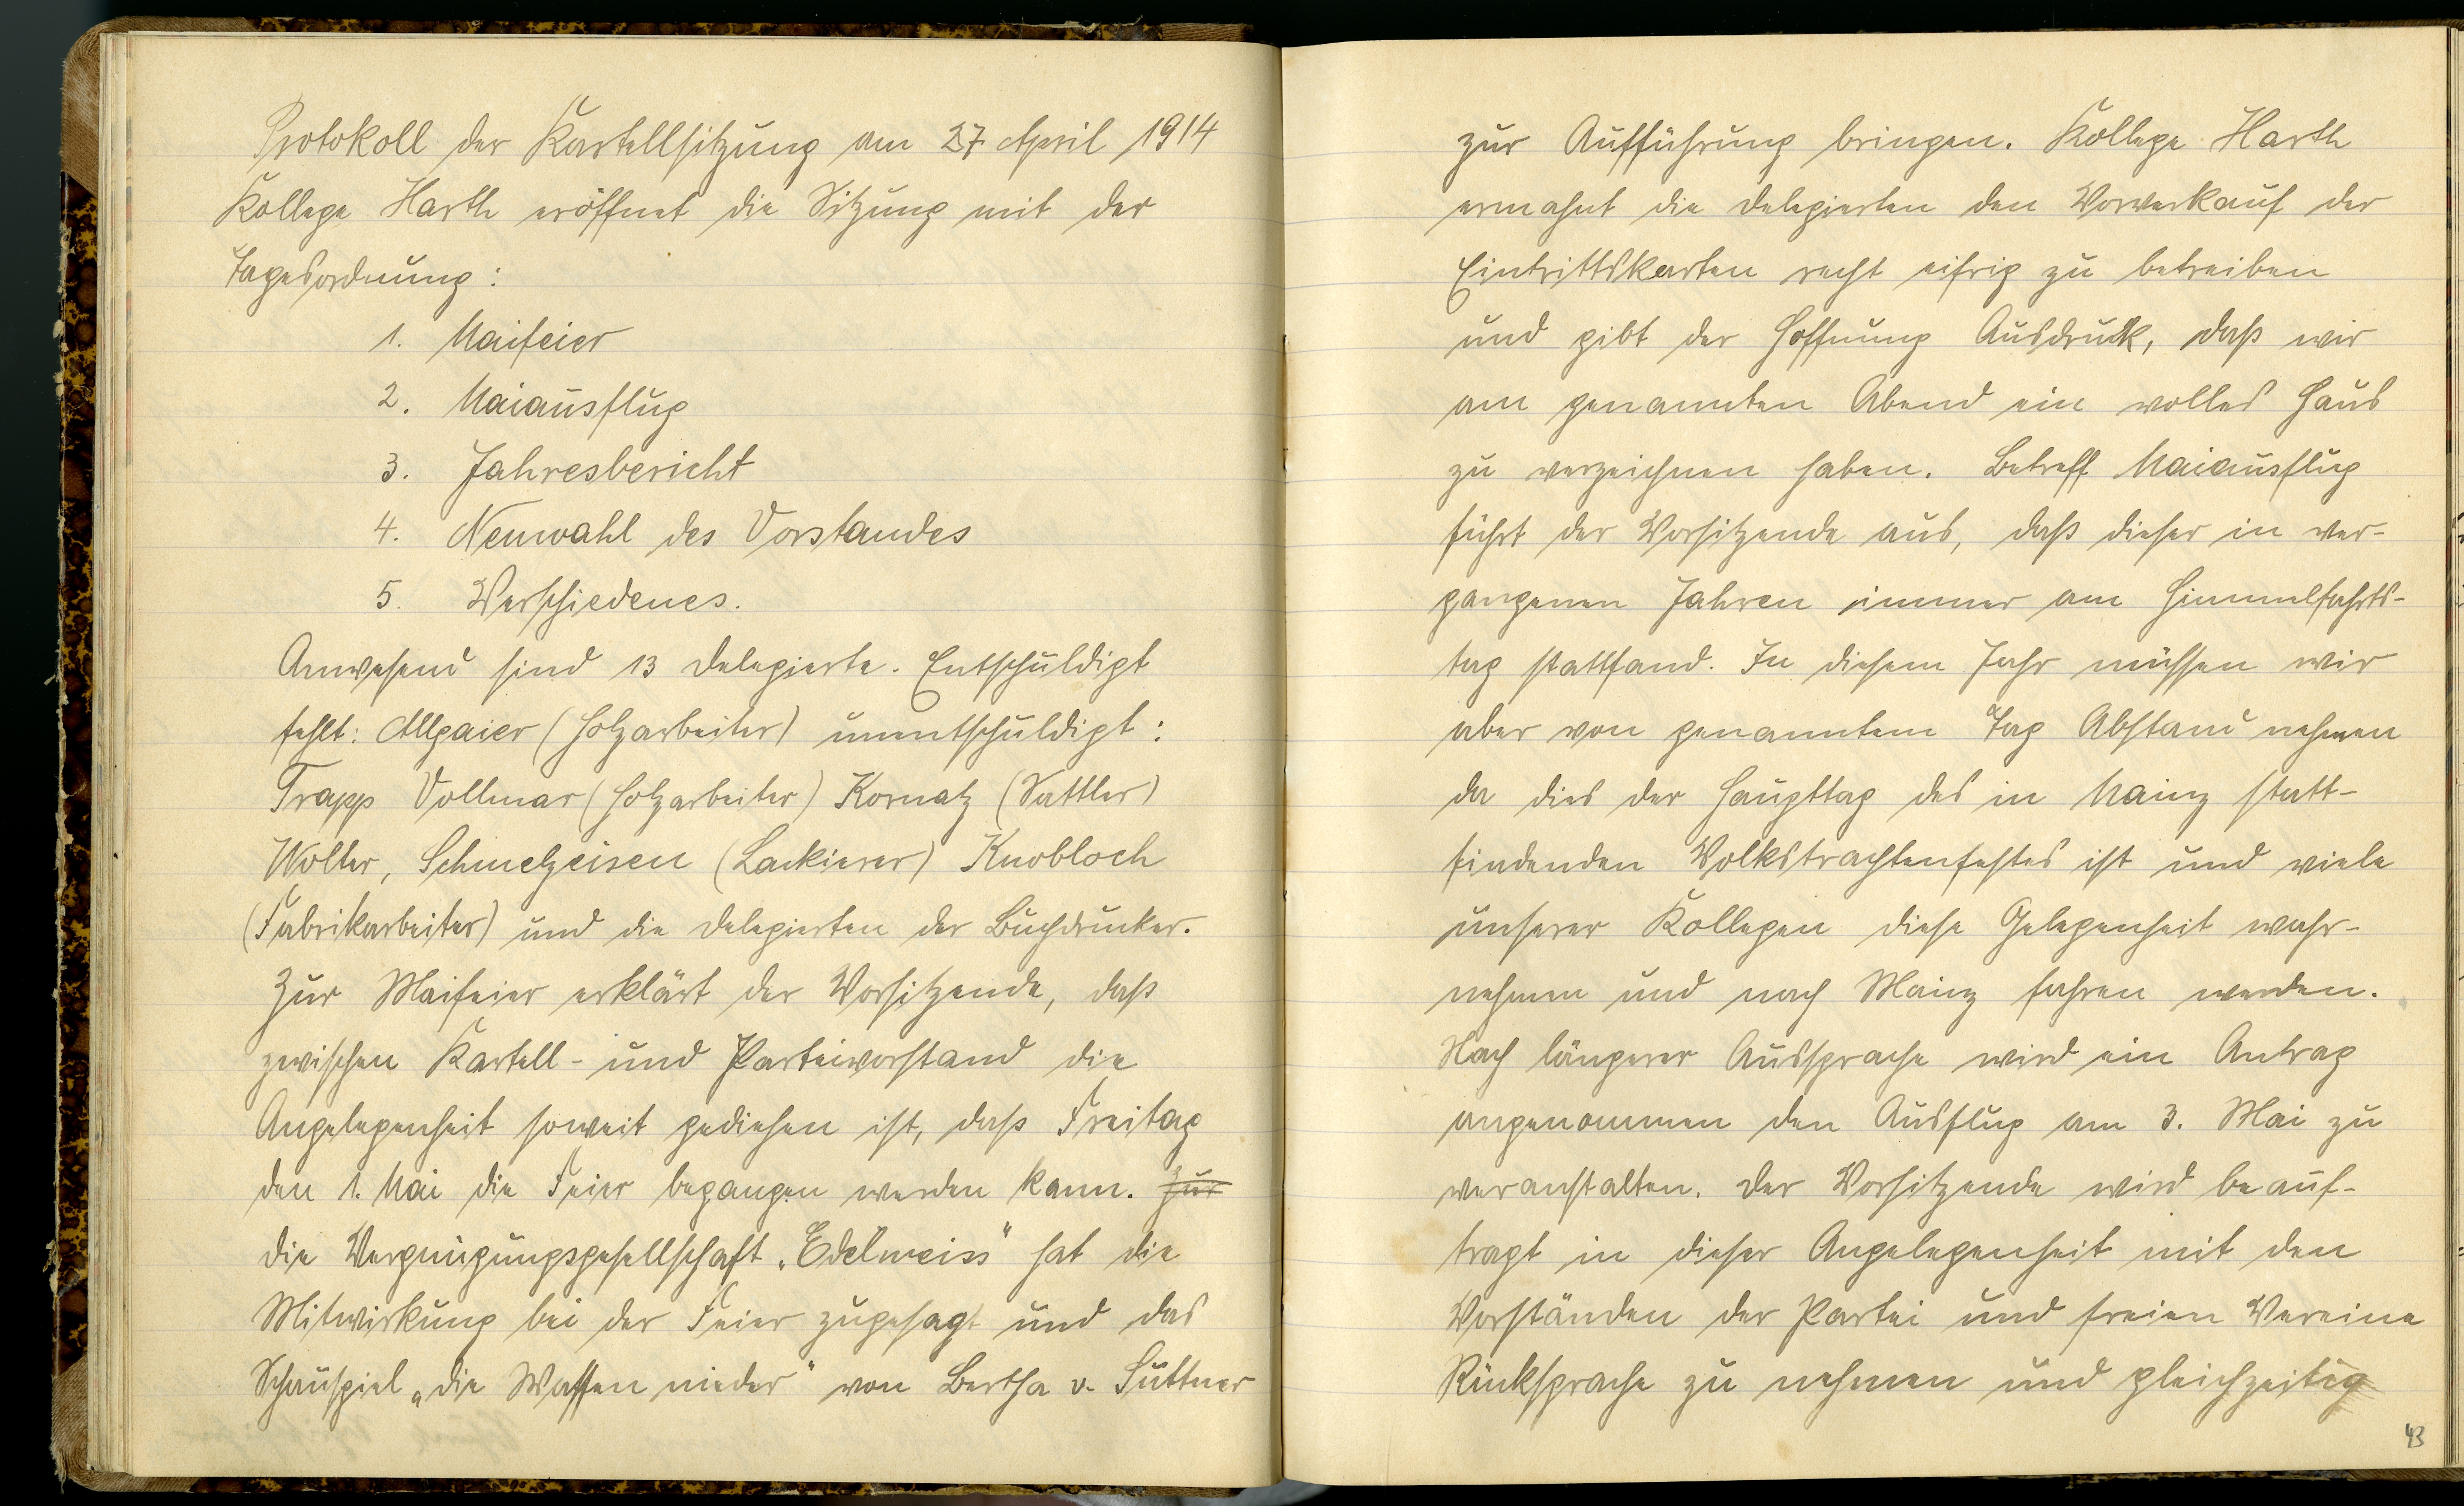 Protokoll der Kartellsitzung am 27 April 1914
Kollege Harth eröffnet die Sitzung mit der
Tagesordnung:
1. Maifeier
2. Maiausflug
3. Jahresbericht
4. Neuwahl des Vorstandes
5. Verschiedenes.
Anwesend sind 13 Delegierte. Entschuldigt
fehlt: Allgaier (Holzarbeiter) unentschuldigt:
Trapp Vollmar (Holzarbeiter) Kornatz (Sattler)
Wolter, Schmelzeisen (Lackierer) Knobloch
(Fabrikarbeiter) und die Delegierten der Buchdrucker.
Zur Maifeier erklärt der Vorsitzende, daß
zwischen Kartell- und Parteivorstand die
Angelegenheit soweit gediehen ist, daß Freitag
den 1. Mai die Feier begangen werden kann. Zur
Die Vergnügungsgesellschaft „Edelweiss" hat die
Mitwirkung bei der Feier zugesagt und das
Schauspiel „Die Waffen nieder" von Bertha v. Suttner
zur Aufführung bringen. Kollege Harth
ermahnt die Delegierten den Vorverkauf der
Eintrittskarten recht eifrig zu betreiben
und gibt der Hoffnung Ausdruck, daß wir
am genannten Abend ein volles Haus
zu verzeichnen haben. Betreff Maiausflug
führt der Vorsitzende aus, daß dieser in ver-
gangenen Jahren immer am Himmelfahrts-
tag stattfand. In diesem Jahr müssen wir
aber von genanntem Tag Abstand nehmen
da dies der Haupttag des in Mainz statt-
findenden Volkstrachtenfestes ist und viele
unserer Kollegen diese Gelegenheit wahr-
nehmen und nach Mainz fahren werden.
Nach längerer Aussprache wird ein Antrag
angenommen den Ausflug am 3. Mai zu
veranstalten. Der Vorsitzende wird beauf-
tragt in dieser Angelegenheit mit den
Vorständen der Partei und freien Vereine
Rücksprache zu nehmen und gleichzeitig
43